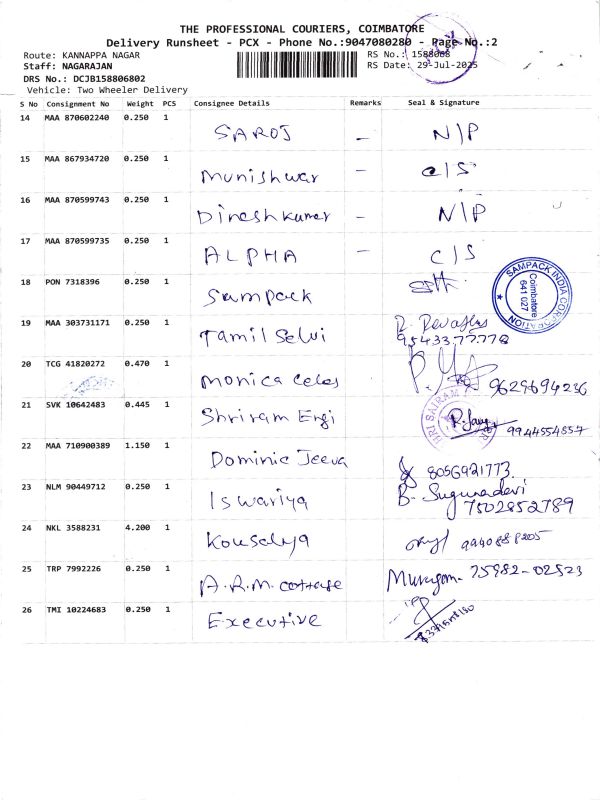 THE PROFESSIONAL COURIERS, COIMBATORE
Delivery Runsheet - PCX - Phone No.:9047080280 - Page No.:2
Route: KANNAPPA NAGAR
RS No.: 1588068
Staff: NAGARAJAN
RS Date: 29-Jul-2025
DRS No.: DCJB158806802
Vehicle: Two Wheeler Delivery
S No Consignment No Weight PCS Consignee Details Remarks Seal & Signature
14 MAA 870602240 0.250 1 SAROJ - N/P
15 MAA 867934720 0.250 1 Munishwar - C/S
16 MAA 870599743 0.250 1 Dinesh kumar - N/P
17 MAA 870599735 0.250 1 ALPHA - C/S
18 PON 7318396 0.250 1 Sampack
SAMPACK INDIA CORPORATION
Coimbatore
641 027
19 MAA 303731171 0.250 1 Tamil Selvi
9543377778
20 TCG 41820272 0.470 1 Monica Celes 9629694236
21 SVK 10642483 0.445 1 Shriram Engi 9944554857
22 MAA 710900389 1.150 1 Dominic Jeeva 8056921773
23 NLM 90449712 0.250 1 Iswariya B. Sugunadevi
7502852789
24 NKL 3588231 4.200 1 Kousalya
25 TRP 7992226 0.250 1 A.R.M. cottage Murugan 75982-02523
26 TMI 10224683 0.250 1 Executive